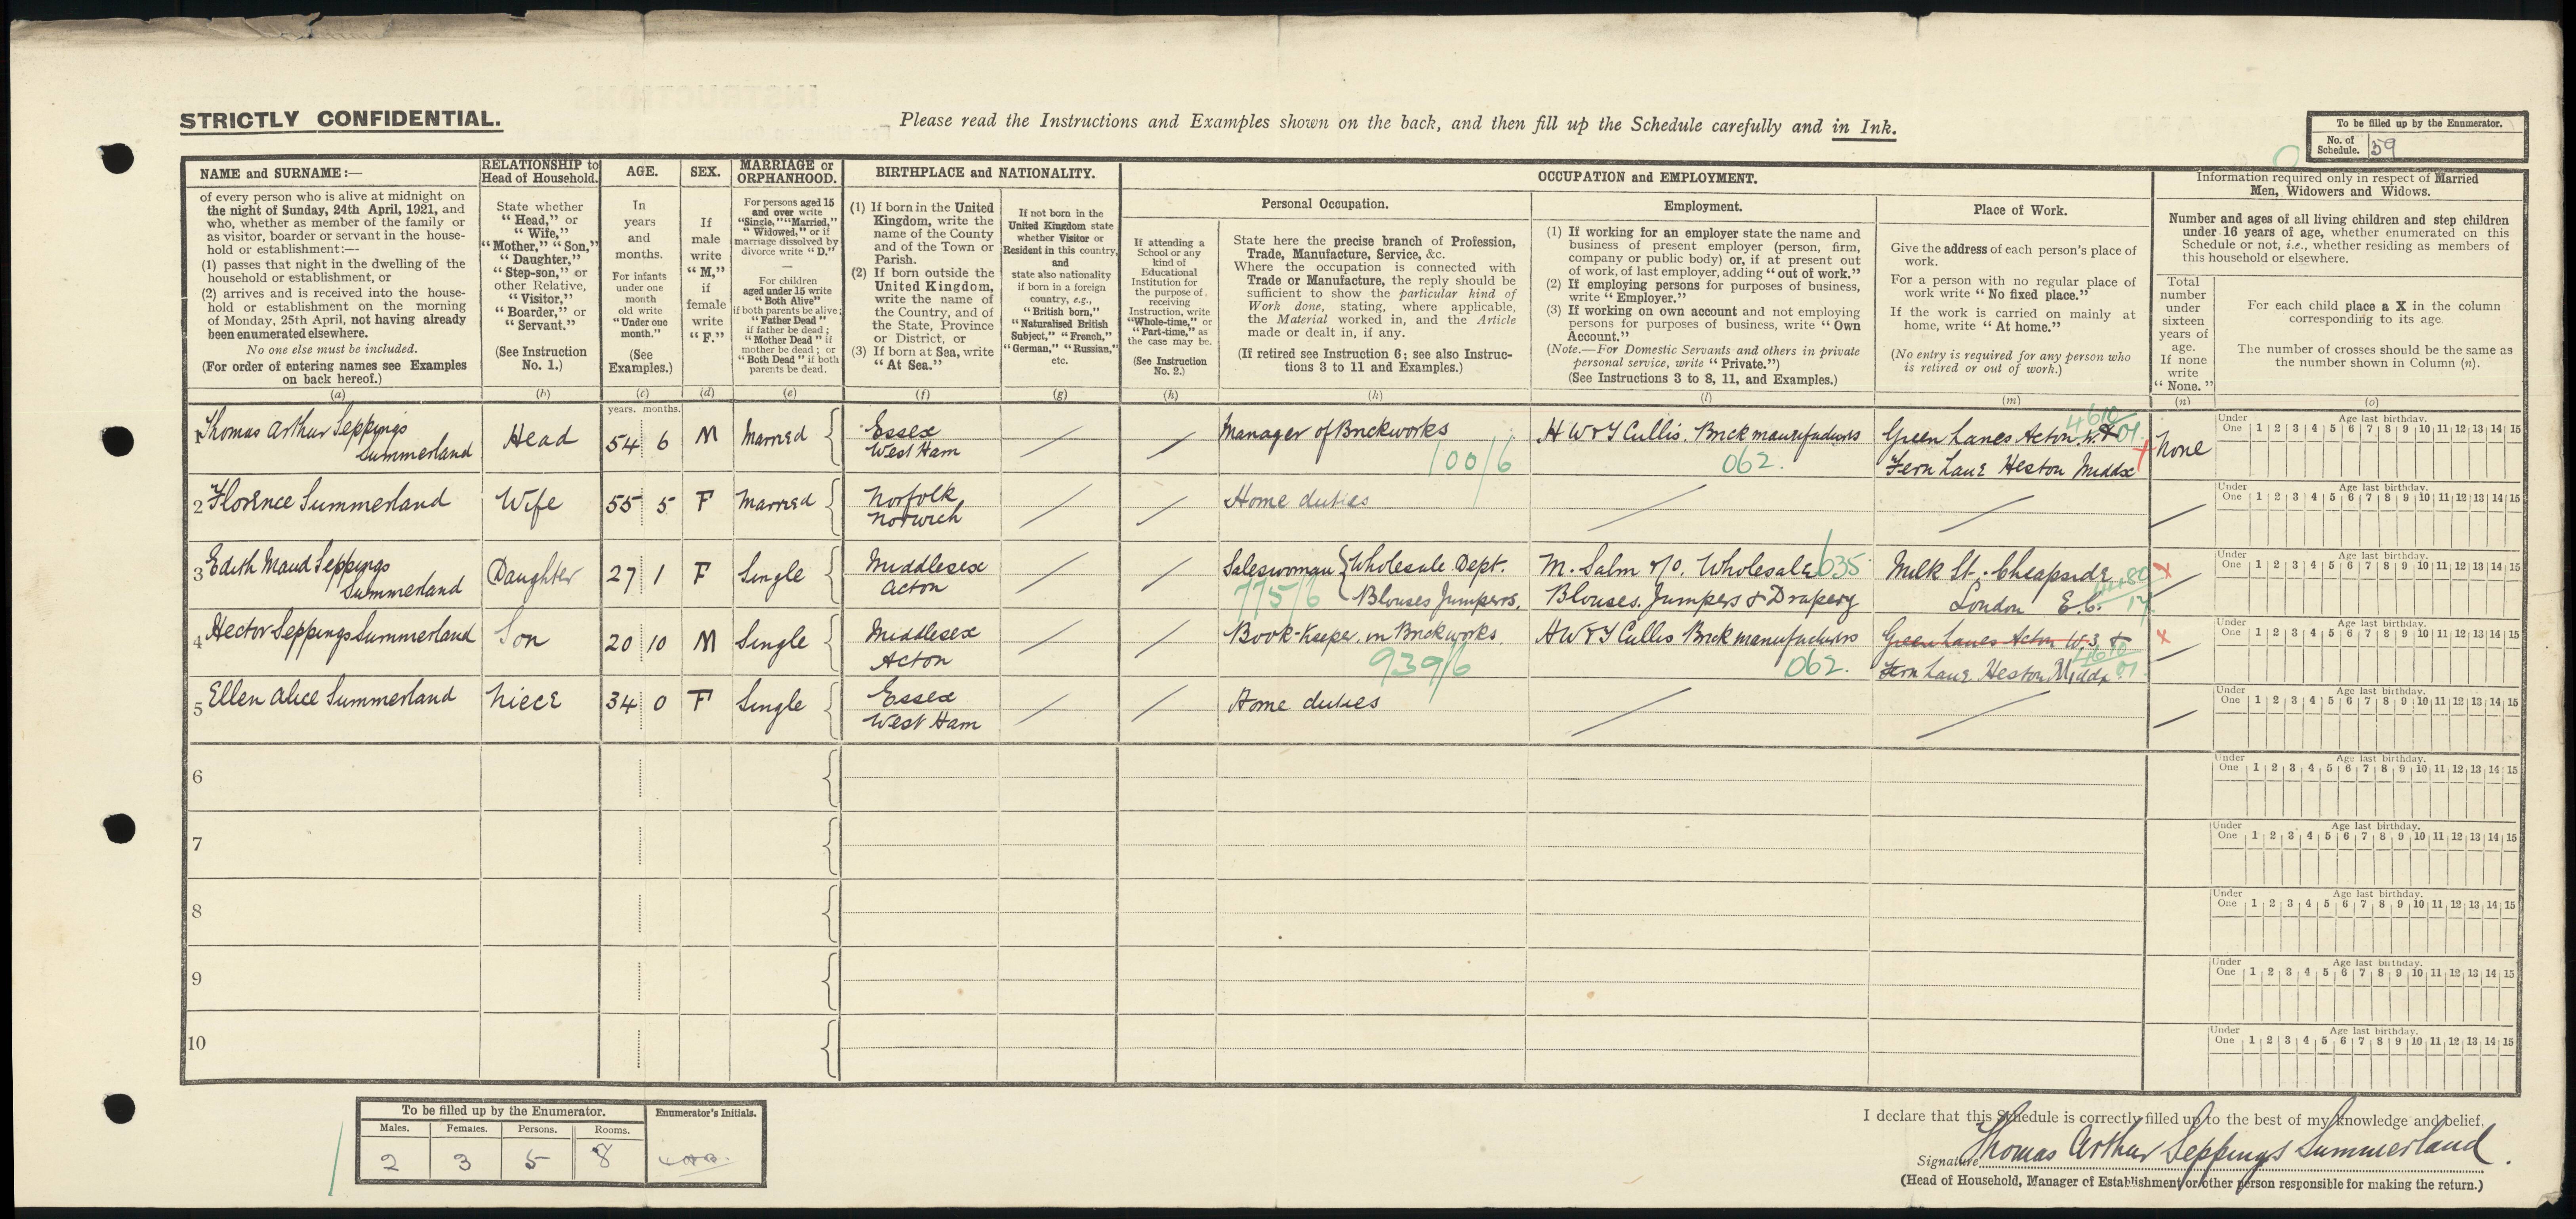 STRICTLY CONFIDENTIAL.
Please read the Instructions and Examples shown on the back, and then fill up the Schedule carefully and in Ink.
To be filled up by the Enumerator.
No. of Schedule. 59
NAME and SURNAME:—
of every person who is alive at midnight on
the night of Sunday, 24th April, 1921, and
who, whether as member of the family or
as visitor, boarder or servant in the house-
hold or establishment:—
(1) passes that night in the dwelling of the
household or establishment, or
(2) arrives and is received into the house-
hold or establishment on the morning
of Monday, 25th April, not having already
been enumerated elsewhere.
No one else must be included.
(For order of entering names see Examples
on back hereof.)
(a)
RELATIONSHIP to
Head of Household.
State whether
"Head," or
"Wife,"
"Mother," "Son,"
"Daughter,"
"Step-son," or
other Relative,
"Visitor,"
"Boarder," or
"Servant."
(See Instruction
No. 1.)
(b)
AGE.
In
years
and
months.
For infants
under one
month
old write
"Under one
month."
(See
Examples.)
(c)
SEX.
If
male
write
"M,"
if
female
write
"F."
(d)
MARRIAGE or
ORPHANHOOD.
For persons aged 15
and over write
"Single," "Married,"
"Widowed," or if
marriage dissolved by
divorce write "D."
—
For children
aged under 15 write
"Both Alive"
if both parents be alive;
"Father Dead"
if father be dead;
"Mother Dead" if
mother be dead; or
"Both Dead" if both
parents be dead.
(e)
BIRTHPLACE and NATIONALITY.
(1) If born in the United
Kingdom, write the
name of the County
and of the Town or
Parish.
(2) If born outside the
United Kingdom,
write the name of
the Country, and of
the State, Province
or District, or
(3) If born at Sea, write
"At Sea."
(f)
If not born in the
United Kingdom state
whether Visitor or
Resident in this country,
and
state also nationality
if born in a foreign
country, e.g.,
"British born,"
"Naturalised British
Subject," "French,"
"German," "Russian,"
etc.
(g)
OCCUPATION and EMPLOYMENT.
If attending a
School or any
kind of
Educational
Institution for
the purpose of
receiving
Instruction, write
"Whole-time," or
"Part-time," as
the case may be.
(See Instruction
No. 2.)
(h)
Personal Occupation.
State here the precise branch of Profession,
Trade, Manufacture, Service, &c.
Where the occupation is connected with
Trade or Manufacture, the reply should be
sufficient to show the particular kind of
Work done, stating, where applicable,
the Material worked in, and the Article
made or dealt in, if any.
(If retired see Instruction 6; see also Instruc-
tions 3 to 11 and Examples.)
(k)
Employment.
(1) If working for an employer state the name and
business of present employer (person, firm,
company or public body) or, if at present out
of work, of last employer, adding "out of work."
(2) If employing persons for purposes of business,
write "Employer."
(3) If working on own account and not employing
persons for purposes of business, write "Own
Account."
(Note.—For Domestic Servants and others in private
personal service, write "Private.")
(See Instructions 3 to 8, 11, and Examples.)
(l)
Place of Work.
Give the address of each person's place of
work.
For a person with no regular place of
work write "No fixed place."
If the work is carried on mainly at
home, write "At home."
(No entry is required for any person who
is retired or out of work.)
(m)
Information required only in respect of Married
Men, Widowers and Widows.
Number and ages of all living children and step children
under 16 years of age, whether enumerated on this
Schedule or not, i.e., whether residing as members of
this household or elsewhere.
Total
number
under
sixteen
years of
age.
If none
write
"None."
(n)
For each child place a X in the column
corresponding to its age.
The number of crosses should be the same as
the number shown in Column (n).
(o)
years. months.
1 Thomas Arthur Seppings
Summerland
Head
54 6
M
Married
Essex
West Ham
Manager of Brickworks
100/6
H W & Y Cullis. Brick manufacturers
062.
Green Lanes Acton. W.3 &
Fern Lane Heston Middx
4610
01
None
Under One 1 2 3 4 5 6 7 8 9 10 11 12 13 14 15
Age last birthday.
2 Florence Summerland
Wife
55 5
F
Married
Norfolk
Norwich
Home duties
Under One 1 2 3 4 5 6 7 8 9 10 11 12 13 14 15
Age last birthday.
3 Edith Maud Seppings
Summerland
Daughter
27 1
F
Single
Middlesex
Acton
Saleswoman { Wholesale Dept.
Blouses Jumpers.
775/6
M. Salm & Co. Wholesale
635
Blouses. Jumpers & Drapery
Milk St. Cheapside
London E.C.
Under One 1 2 3 4 5 6 7 8 9 10 11 12 13 14 15
Age last birthday.
4 Hector Seppings Summerland
Son
20 10
M
Single
Middlesex
Acton
Book-Keeper. in Brickworks.
939/6
H W & Y Cullis Brick manufacturers
062.
Green Lanes Acton W.3 &
Fern Lane Heston Middx
4610
01
Under One 1 2 3 4 5 6 7 8 9 10 11 12 13 14 15
Age last birthday.
5 Ellen Alice Summerland
Niece
34 0
F
Single
Essex
West Ham
Home duties
Under One 1 2 3 4 5 6 7 8 9 10 11 12 13 14 15
Age last birthday.
6
Under One 1 2 3 4 5 6 7 8 9 10 11 12 13 14 15
Age last birthday.
7
Under One 1 2 3 4 5 6 7 8 9 10 11 12 13 14 15
Age last birthday.
8
Under One 1 2 3 4 5 6 7 8 9 10 11 12 13 14 15
Age last birthday.
9
Under One 1 2 3 4 5 6 7 8 9 10 11 12 13 14 15
Age last birthday.
10
Under One 1 2 3 4 5 6 7 8 9 10 11 12 13 14 15
Age last birthday.
To be filled up by the Enumerator.
Enumerator's Initials.
Males. Females. Persons. Rooms.
2 3 5 8
I declare that this Schedule is correctly filled up to the best of my knowledge and belief.
Signature Thomas Arthur Seppings Summerland.
(Head of Household, Manager of Establishment or other person responsible for making the return.)